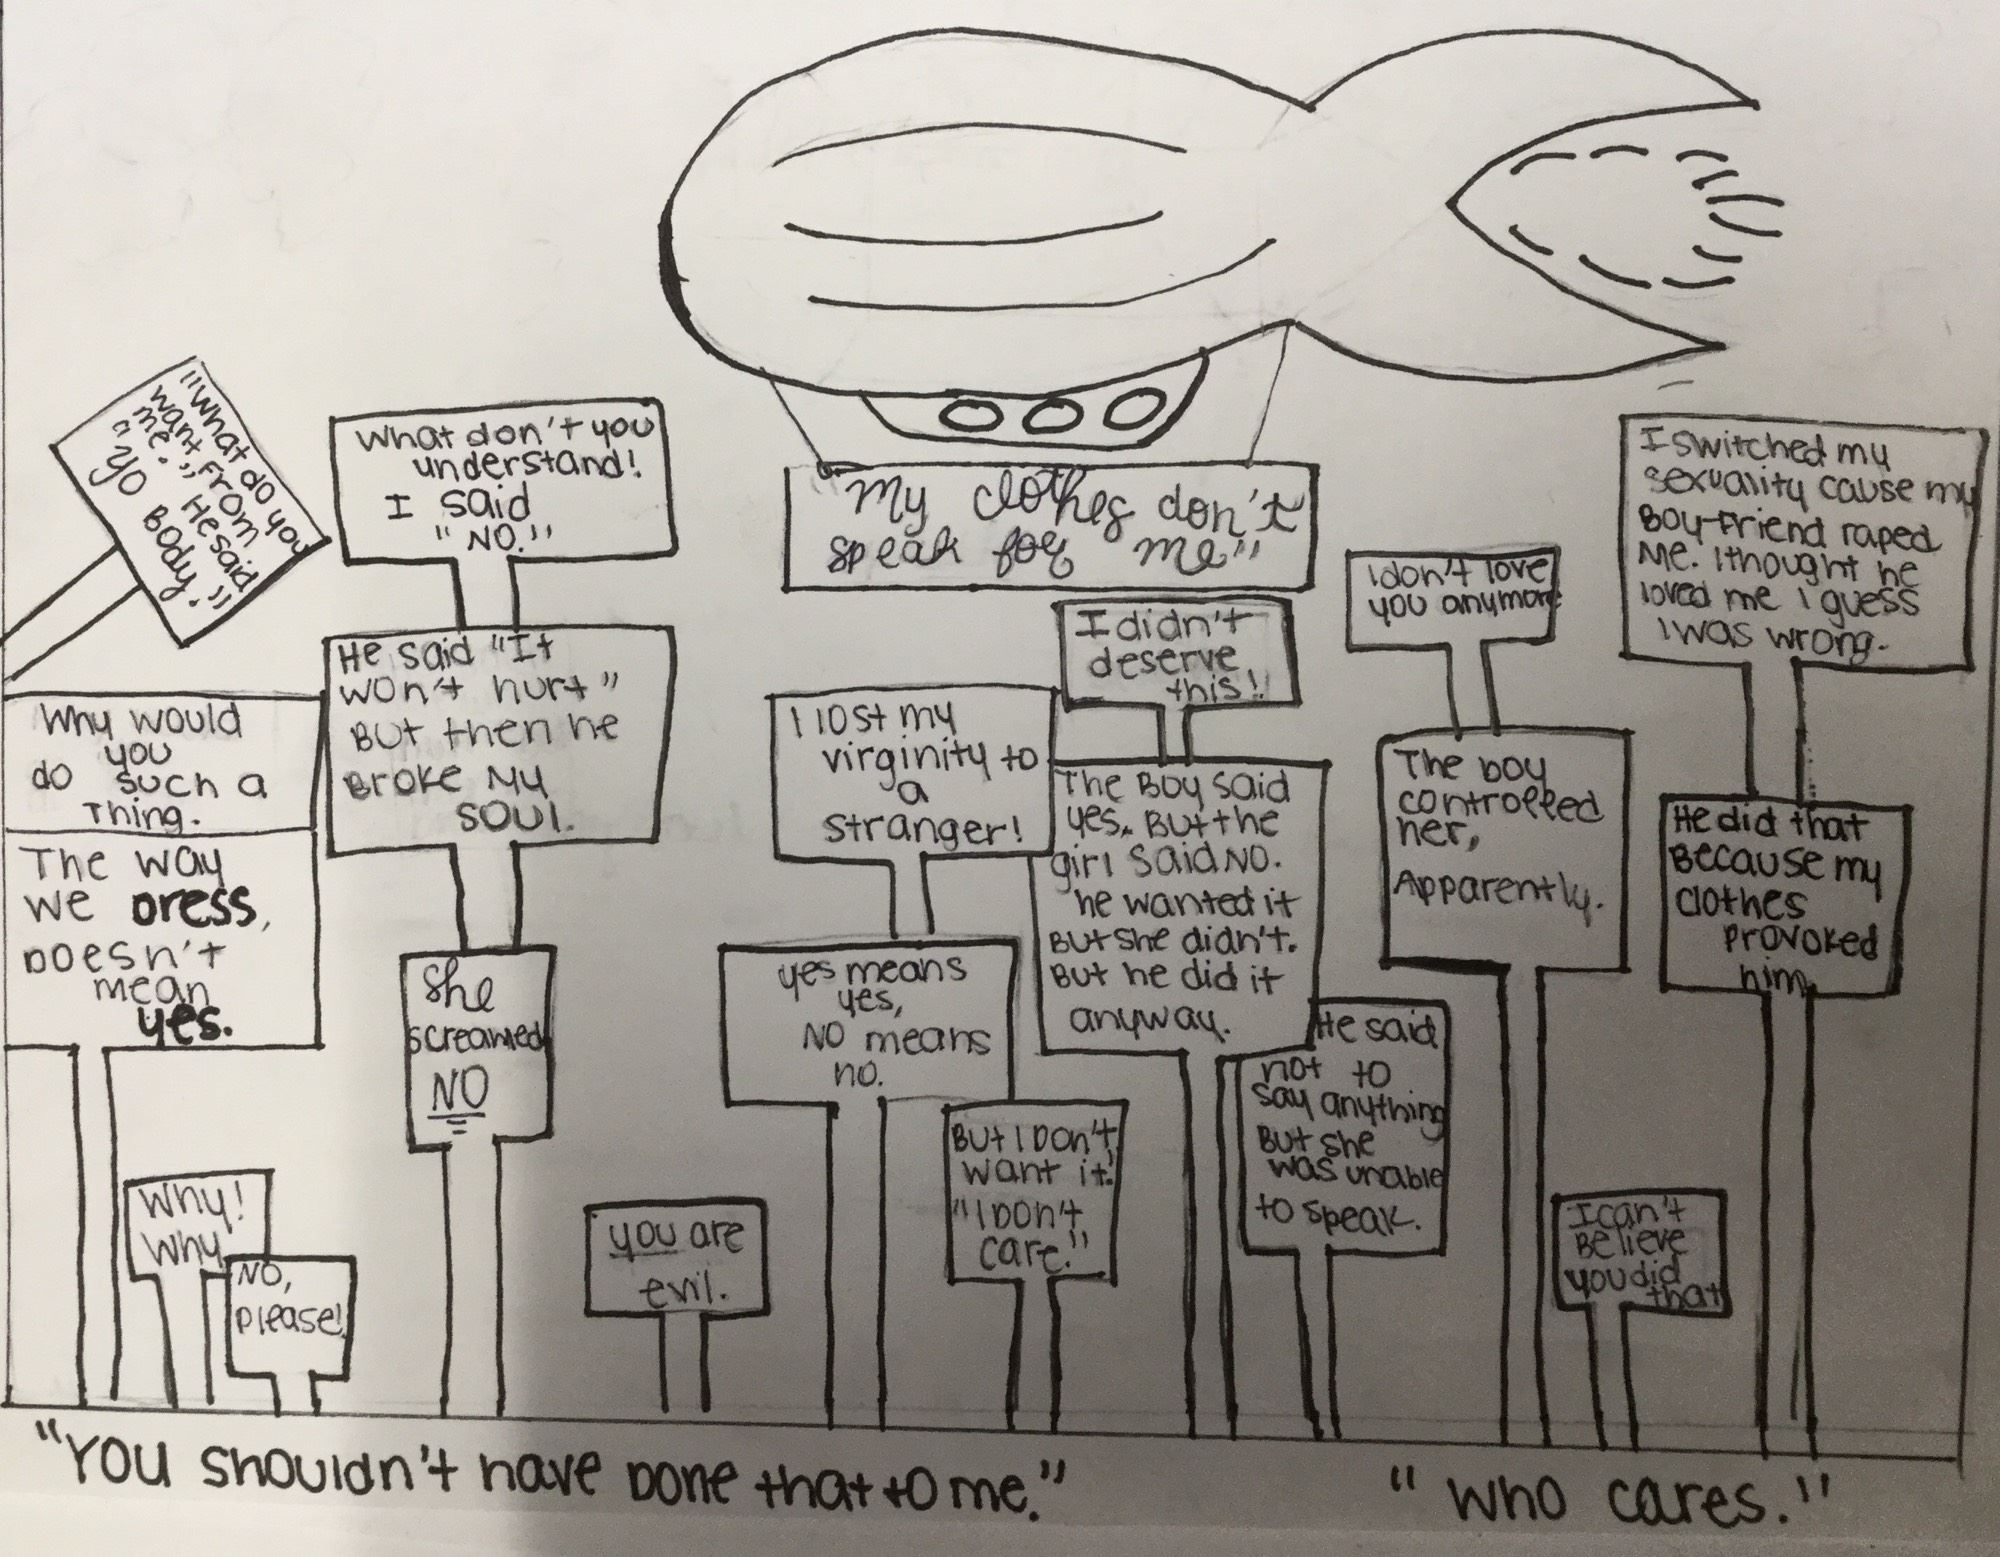 "My clothes don't
speak for me"
"What do you
want from
me." He said
"Yo Body."
What don't you
understand!
I said
"NO."
I switched my
sexuality cause my
Boy-Friend raped
Me. I thought he
loved me I guess
I was wrong.
I don't love
you anymore
I didn't
deserve
this!!
He said "It
won't hurt"
But then he
Broke My
SOUl.
Why would
you
do such a
Thing.
I lost my
virginity to
a
stranger!
The Boy said
yes. But the
girl Said NO.
he wanted it
But she didn't.
But he did it
anyway.
The boy
controlled
her,
Apparently.
He did that
Because my
clothes
provoked
him.
The way
we Dress,
Doesn't
mean
yes.
She
screamed
NO
yes means
yes,
NO means
no.
He said
not to
say anything
But she
was unable
to speak.
But I Don't
want it!
"I Don't
care."
Why!
Why
NO,
please!
you are
evil.
I can't
Believe
you did
that
"You shouldn't have Done that to me." "Who cares."